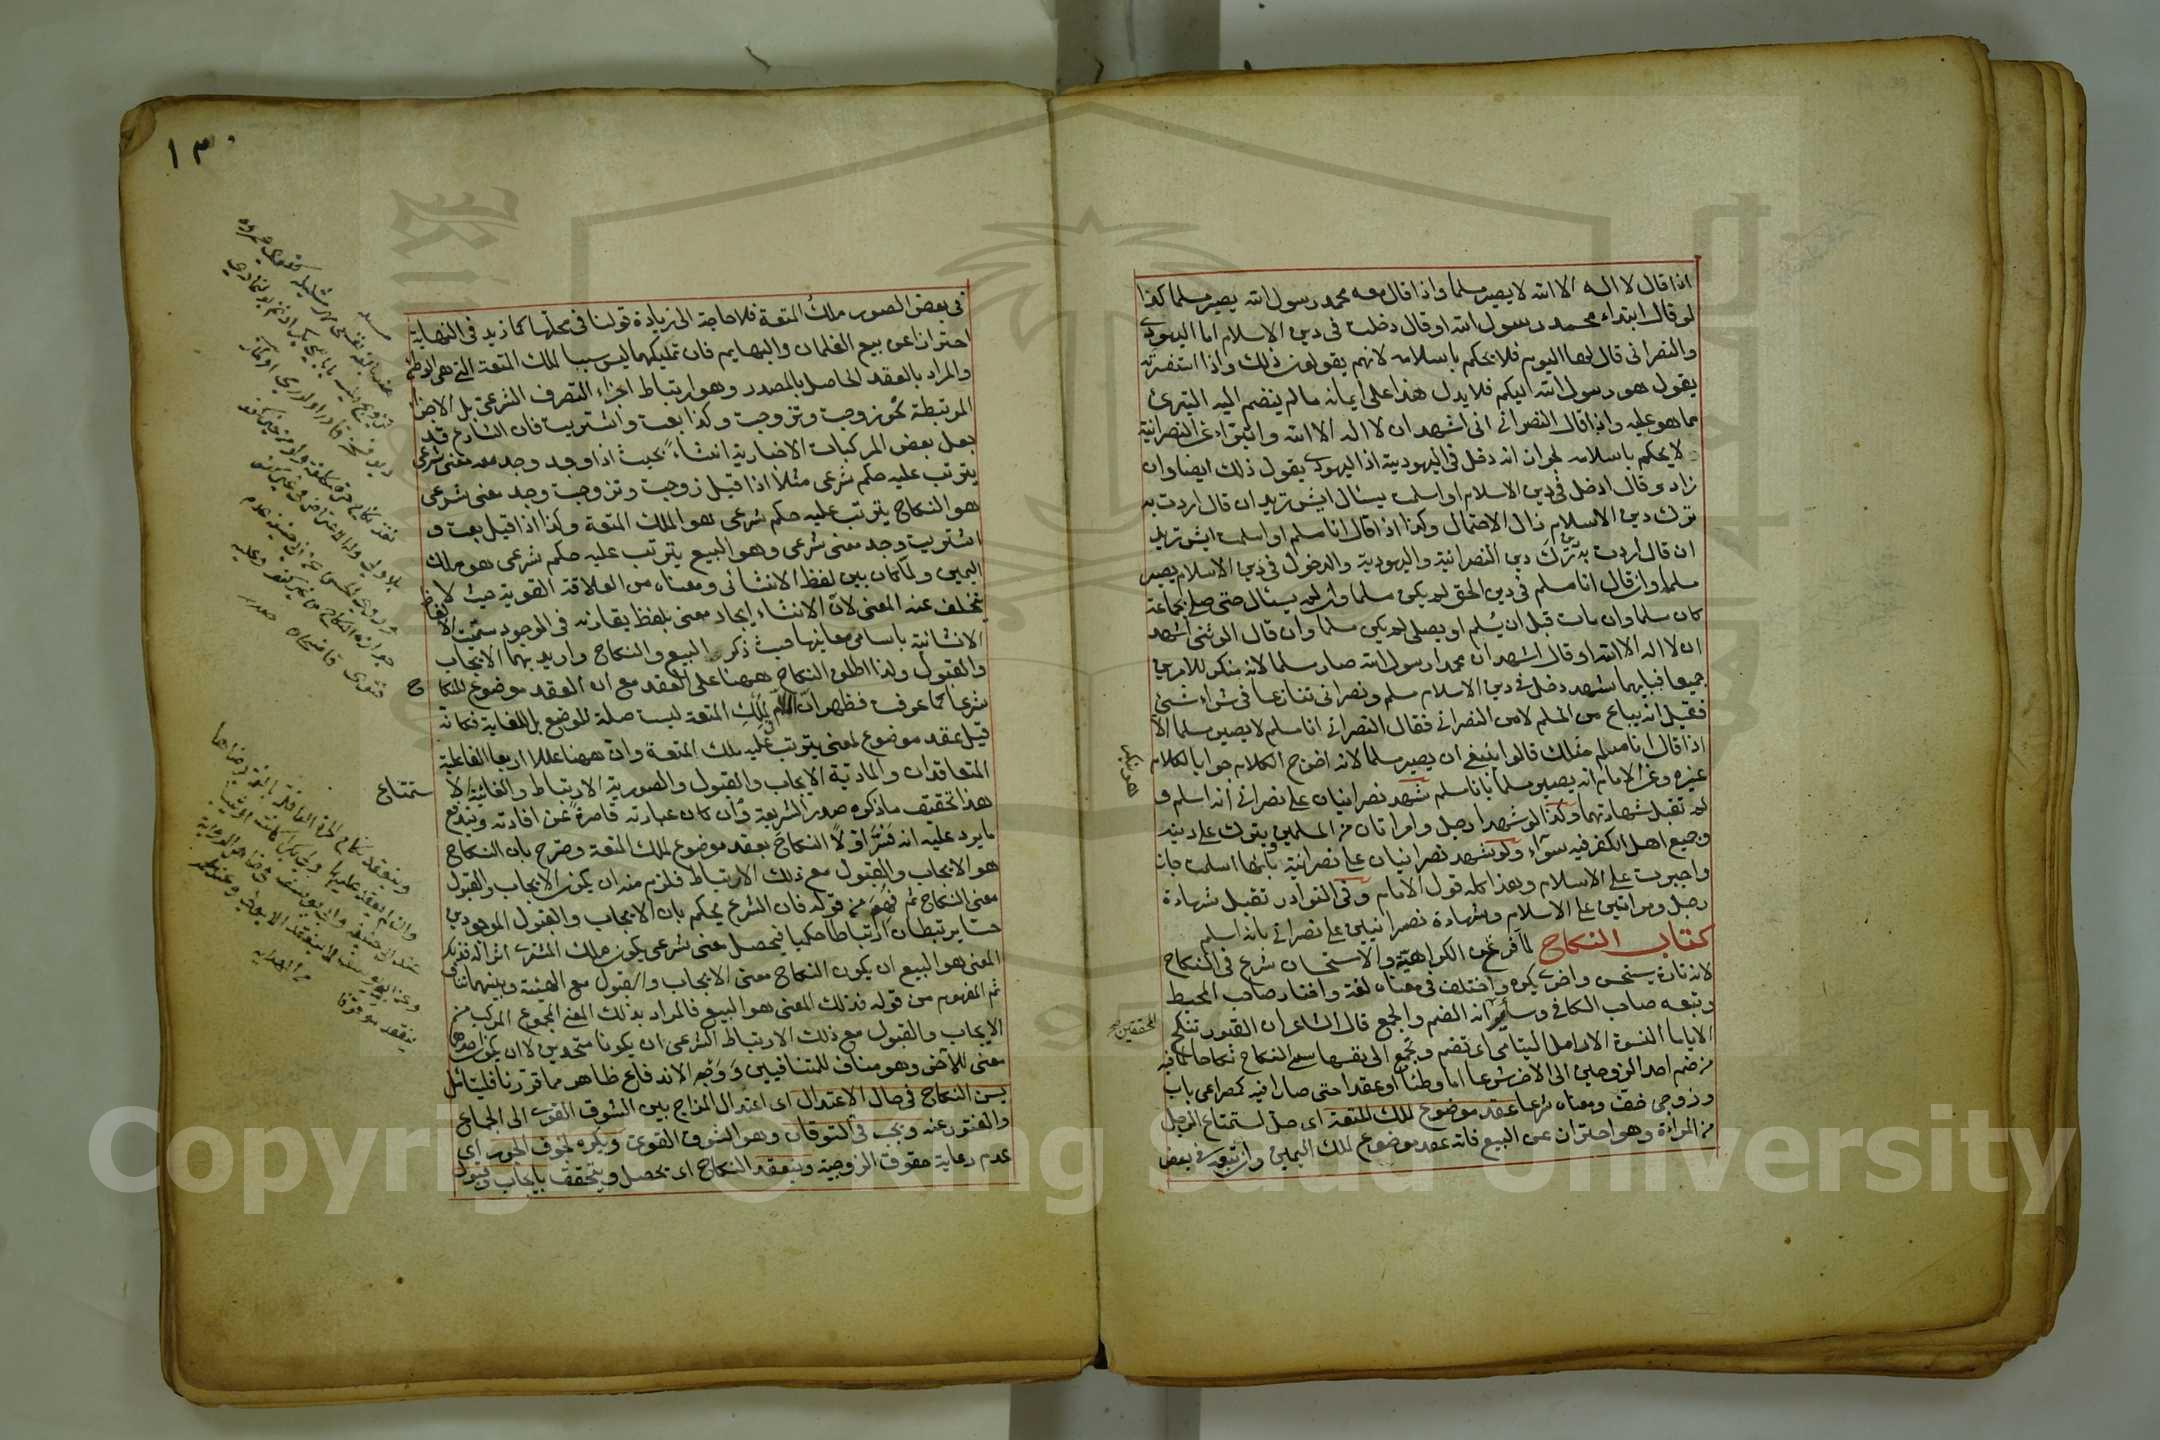 اذا قال لا اله الا الله لا يصير مسلما واذا قال معه محمد رسول الله يصير مسلما كذا
لو قال ابتداء محمد رسول الله او قال دخلت في دين الاسلام اما اليهودى
والنصرانى قال لها اليوم فلا يحكم باسلامه لانهم يقولون ذلك واذا استفسرته
يقول هو رسول الله اليكم فلا يدل هذا على ايمانه ما لم ينضم اليه التبرئ
مما هو عليه واذا قال النصرانى انى اشهد ان لا اله الا الله واتبرّاء عن النصرانية
لا يحكم باسلامه لجواز انه دخل في اليهودية اذ اليهودى يقول ذلك ايضا وان
زاد وقال ادخل في دين الاسلام او اسلمت يسئال ايش تريد ان قال اردت به
ترك دين الاسلام زال الاحتمال وكذا اذا قال انا مسلم او اسلمت ايش تريد
ان قال اردت به تَرْكَ دين النصرانية واليهودية والدخول في دين الاسلام يصير
مسلما وان قال انا مسلم في دين الحق لم يكن مسلما وان لم يسئال حتى صلى بجماعة
كان مسلما وان مات قبل ان يُسلم او يصلى لم يكن مسلما وان قال الوثنى اشهد
ان لا اله الا الله او قال اشهد ان محمدا رسول الله صار مسلما لانه منكر للامرين
جميعا فبايهما شهد دخل في دين الاسلام مسلم ونصرانى تنازعا في شراء شئ
فقيل انه يباع من المسلم لا من النصرانى فقال النصرانى انا مسلم لا يصير مسلما الا
اذا قال انا مسلم مثلك قالوا ينبغى ان يصير مسلما لانه اخرج الكلام جوابا لكلام
غيره وعن الامام انه يصير مسلما بانا مسلم شهد نصرانيان على نصرانى انه اسلم و
لم تقبل شهادتهما وكذا لو شهد رجل وامراتان من المسلمين ويترك على دينه
وجميع اهل الكفر فيه سوآء ولو شهد نصرانيان على نصرانية بانها اسلمت جاز
واجبرت على الاسلام وهذا كله قول الامام وفى النوادر تقبل شهادة
رجل وامراتين على الاسلام وشهادة نصرانيين على نصرانى بانه اسلم
كتاب النكاح لما فرغ عن الكراهية والاستحسان شرع في النكاح
لانه تارة يستحسن واخرى يكره واختلف في معناه لغة واختار صاحب المحيط
وتبعه صاحب الكافى وسائر انه الضم والجمع قال الشاعر ان القبور تنكح
الايامى النسوة الارامل اليتامى اى تضم وتجمع الى نفسها سمى النكاح نكاحا لما فيه
من ضم احد الزوجين الى الاخر شرعا اما وطئا او عقدا حتى صارا فيه كمصراعى باب
وزوجى خف ومعناه شرعا عقد موضوع لملك المتعة اى حلّ استمتاع الرجل
من المراءة وهو احتراز عن البيع فانه عقد موضوع لملك اليمين وان تبعه في بعض
هو بتكل
للمحققين
١٣٠
في بعض الصور ملك المتعة فلا حاجة الى زيادة قولنا في محلها كما زيد في النهاية
احترازا عن بيع الغلمان والبهايم فان تمليكهما ليس سببا لملك المتعة التى هى الوطئ
والمراد بالعقد الحاصل بالمصدر وهو ارتباط اجزاء التصرف الشرعى بل الاجزاء
المرتبطة نحو زوجت وتزوجت وكذا بعت واشتريت فان الشارع قد
جعل بعض المركبات الاخبارية انشاءً بحيث اذا وجد وجد معه معنى شرعى
يترتب عليه حكم شرعى مثلا اذا قيل زوجت وتزوجت وجد معنى شرعى
هو النكاح يترتب عليه حكم شرعى هو الملك المتعة وكذا اذا قيل بعت و
اشتريت وجد معنى شرعى وهو البيع يترتب عليه حكم شرعى هو ملك
اليمين ولما كان بين لفظ الانشائى ومعناه من العلاقة القوية حيث لا
يتخلف عنه المعنى لانّ الانشاء ايجاد معنى بلفظ يقارنه في الوجود سمّيت الالفاظ
الانشائية باسامى معانيها حيث ذكر البيع والنكاح واريد بهما الايجاب
والقبول ولذا اطلق النكاح ههنا على العقد مع ان العقد موضوع للنكاح
شرعا كما عرف فظهر ان لملك المتعة ليست صلة للوضع بل للغاية فكانه
قيل عقد موضوع لمعنى يترتب عليه ملك المتعة وانّ ههنا عللا اربعا الفاعلية
المتعاقدان والمادية الايجاب والقبول والصورية الارتباط والغائية الاستمتاع
هذا تحقيق ما ذكره صدر الشريعة وان كان عبارته قاصرة عن افادته ويندفع
ما يرد عليه انه فسّر اولا النكاح بعقد موضوع لملك المتعة وصرح بان النكاح
هو الايجاب والقبول مع ذلك الارتباط فلزم منه ان يكون الايجاب والقبول
معنى النكاح ثم فُهم من قوله فان الشرع يحكم بان الايجاب والقبول الموجودين
حسّا يرتبطان ارتباطا حكميا فيحصل معنى شرعى يكون ملك المشترى اثرا له فذلك
المعنى هو البيع ان يكون النكاح معنى الايجاب والقبول مع الهيئة وبينهما تناف
ثم المفهوم من قوله فذلك المعنى هو البيع فالمراد بذلك المعنى المجموع المركب من
الايجاب والقبول مع ذلك الارتباط الشرعى ان يكونا متحدين لا ان يكون احدهما
معنى للآخر وهو مناف للمتنافيين ووجه الاندفاع ظاهر مما قررنا فليتأمل
يسن النكاح في حال الاعتدال اى اعتدال المزاج بين الشوق القوى الى الجماع
والفتور عنه ويجب في التوقان وهو الشوق القوى ويكره لخوف الجور اى
عدم رعاية حقوق الزوجية وينعقد النكاح اى يحصل ويتحقق بايجاب وقبول
وينعقد نكاح الحرة العاقلة البالغة برضاها
وان لم يعقد عليها ولى بكرا كانت او ثيبا
عند ابى حنيفة وابى يوسف في ظاهر الرواية
وعن ابى يوسف لا ينعقد الا بولى وعند محمد
ينعقد موقوفا من الهداية